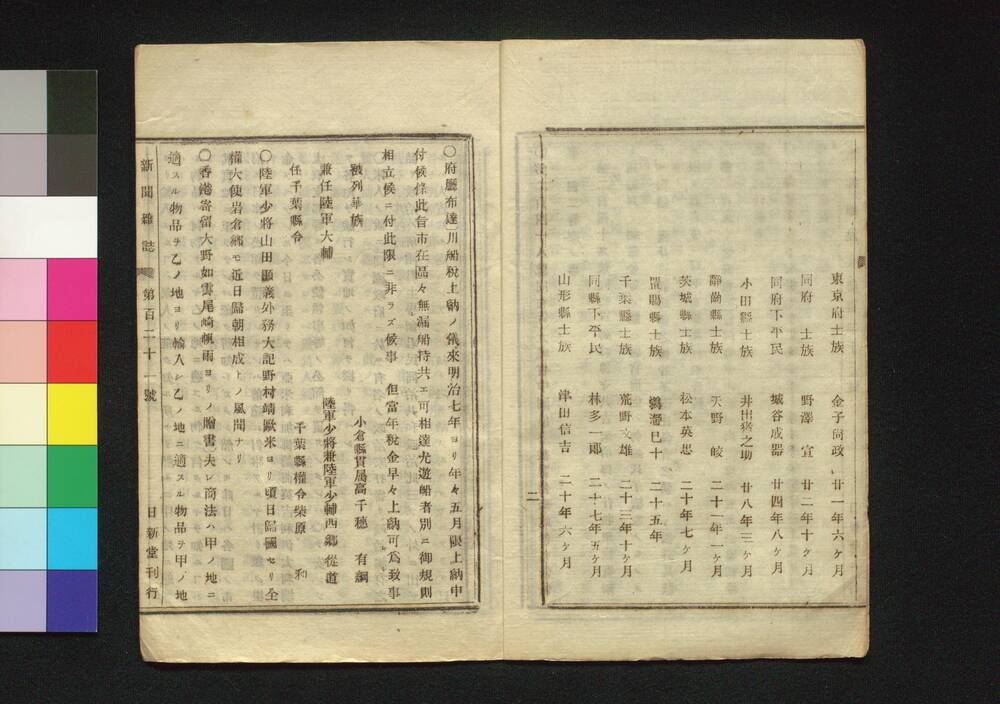 東京府士族 金子尙政 廿一年六ヶ月
同府 士族 野澤 宣 廿二年十ヶ月
同府下平民 城谷成器 廿四年八ヶ月
小田縣士族 井出猪之助 廿八年三ヶ月
靜岡縣士族 天野 皎 二十一年一ヶ月
茨城縣士族 松本英忠 二十年七ヶ月
置賜縣士族 鵜澤巳十 二十五年
千葉縣士族 荒野文雄 二十三年十ヶ月
同縣下平民 林多一郞 二十七年五ヶ月
山形縣士族 津田信吉 二十年六ヶ月
二
〇府廳布達〕川船稅上納ノ儀來明治七年ヨリ年々五月限上納申
付候條此旨市在區々無漏船持共エ可相達尤遊船者別ニ御規則
相立候ニ付此限ニ非ラズ候事 但當年稅金早々上納可爲致事
被列華族 小倉縣貫屬高千穗 有綱
兼任陸軍大輔 陸軍少將兼陸軍少輔西鄕 從道
任千葉縣令 千葉縣權令柴原 和
〇陸軍少將山田顯義外務大記野村靖歐米ヨリ頃日歸國セリ全
權大使岩倉鄕モ近日歸朝相成トノ風聞ナリ
〇香港寄留大野如雲尾崎帆雨ヨリノ贈書〕夫レ商法ハ甲ノ地ニ
適スル物品ヲ乙ノ地ヨリ輸入シ乙ノ地ニ適スル物品ヲ甲ノ地
新聞雜誌 第百二十一號 日新堂刊行